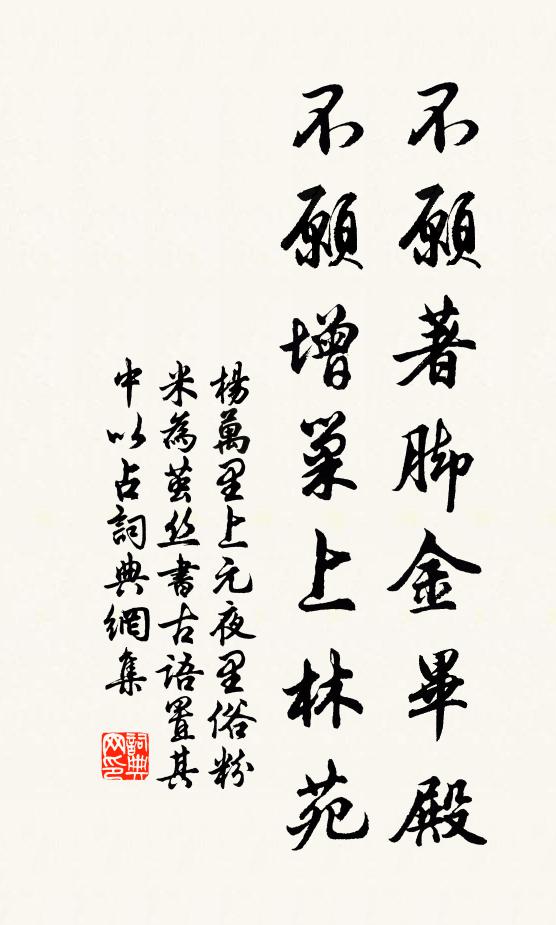 不願著脚金畢殿
不願增巢上林苑
楊萬里上元夜里俗粉
米為蠒丝書古語置其
中以占詞典網集
詞典网印